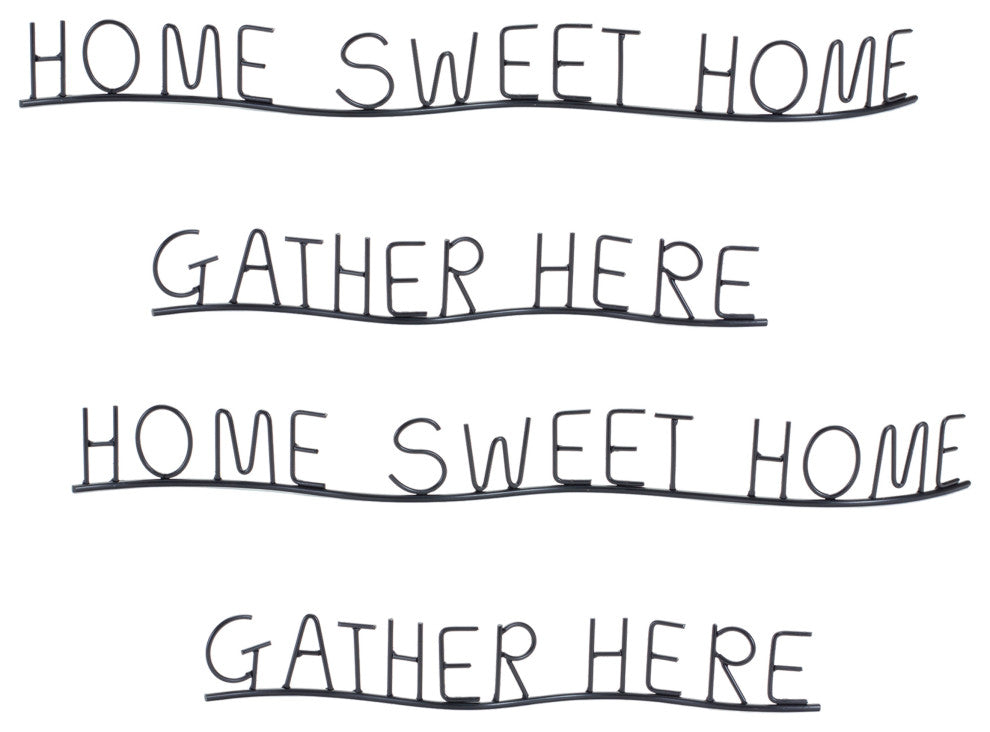 HOME SWEET HOME
GATHER HERE
HOME SWEET HOME
GATHER HERE